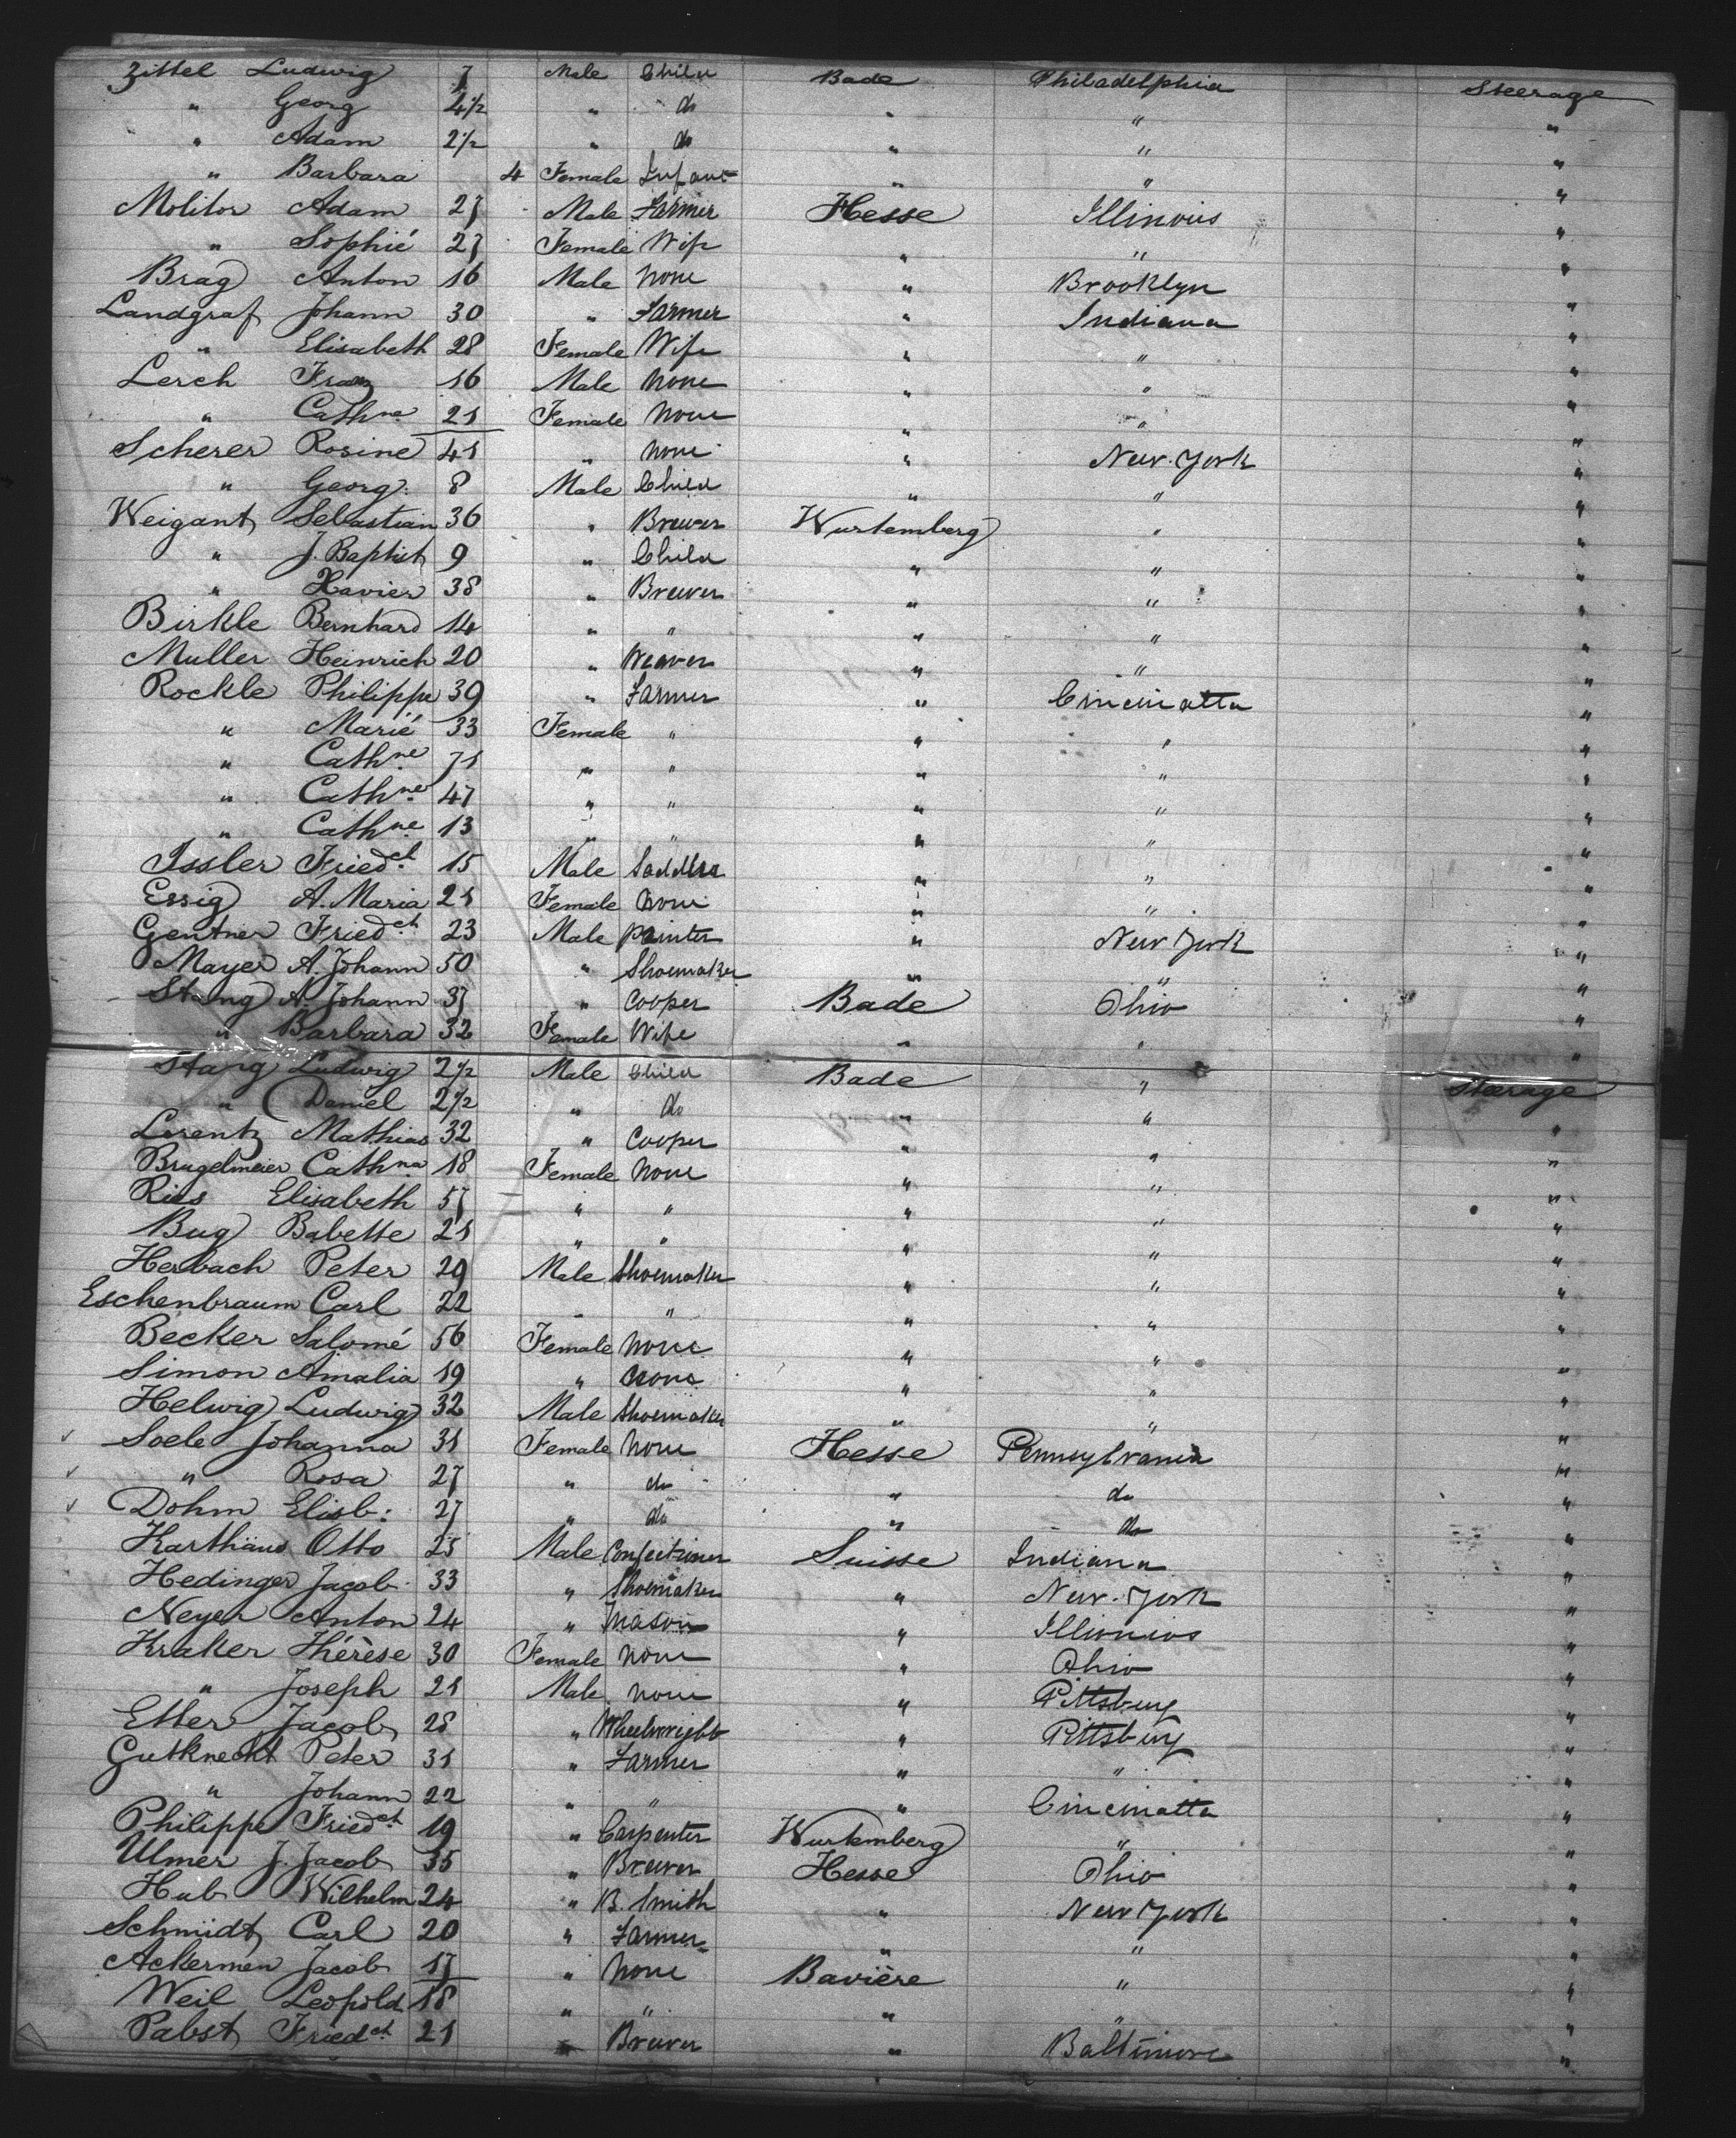 Zittel Ludwig 7 Male Child Bade Philadelphia Steerage
" Georg 4½ " do " " "
" Adam 2½ " do " " "
" Barbara 4 Female Infant " " "
Molitor Adam 27 Male Farmer Hesse Illinois "
" Sophié 27 Female Wife " " "
Brag Anton 16 Male None " Brooklyn "
Landgraf Johann 30 " Farmer " Indiana "
" Elisabeth 28 Female Wife " " "
Lerch Franz 16 Male None " " "
" Cathne 21 Female None " " "
Scherer Rosine 41 " None " New-York "
" Georg 8 Male Child " " "
Weigant Sebastian 36 " Brewer Wurtemberg " "
" J. Baptist 9 " Child " " "
" Xavier 38 " Brewer " " "
Birkle Bernhard 14 " " " " "
Muller Heinrich 20 " Weaver " " "
Rockle Philippe 39 " Farmer " Cincinatta "
" Marié 33 Female " " " "
" Cathne 71 " " " " "
" Cathne 47 " " " " "
" Cathne 13 " " " " "
Issler Friedch 15 Male Saddler " " "
Essig A. Maria 21 Female None " " "
Gentner Friedch 23 Male Painter " New York "
Mayer A. Johann 50 " Shoemaker " " "
Stang A. Johann 37 " Cooper Bade Ohio "
" Barbara 32 Female Wife " " "
Stang Ludwig 2½ Male Child Bade " Steerage
" Daniel 2½ " do " " "
Lorentz Mathias 32 " Cooper " " "
Brugelmeier Cathna 18 Female None " " "
Riss Elisabeth 57 " " " " "
Bug Babette 21 " " " " "
Herbach Peter 29 Male Shoemaker " " "
Eschenbraum Carl 22 " " " " "
Becker Salomé 56 Female None " " "
Simon Amalia 19 " None " " "
Helwig Ludwig 32 Male Shoemaker " " "
Soele Johanna 31 Female None Hesse Pennsylvania "
" Rosa 27 " do " do "
Dohm Elisb: 27 " do " do "
Karthäus Otto 25 Male Confectioner Suisse Indiana "
Hedinger Jacob 33 " Shoemaker " New-York "
Neyer Anton 24 " Mason " Illionios "
Kraker Thérèse 30 Female None " Ohio "
" Joseph 21 Male None " Pittsburg "
Etter Jacob 28 " Wheelwright " Pittsburg "
Gutknecht Peter 31 " Farmer " " "
" Johann 22 " " " Cincinatta "
Philippe Friedch 19 " Carpenter Wurtemberg " "
Ulmer J. Jacob 35 " Brewer Hesse Ohio "
Hub Wilhelm 24 " B. Smith " New York "
Schmidt Carl 20 " Farmer " " "
Ackermen Jacob 17 " None Bavière " "
Weil Leopold 18 " " " " "
Pabst Friedch 21 " Brewer " Baltimore "